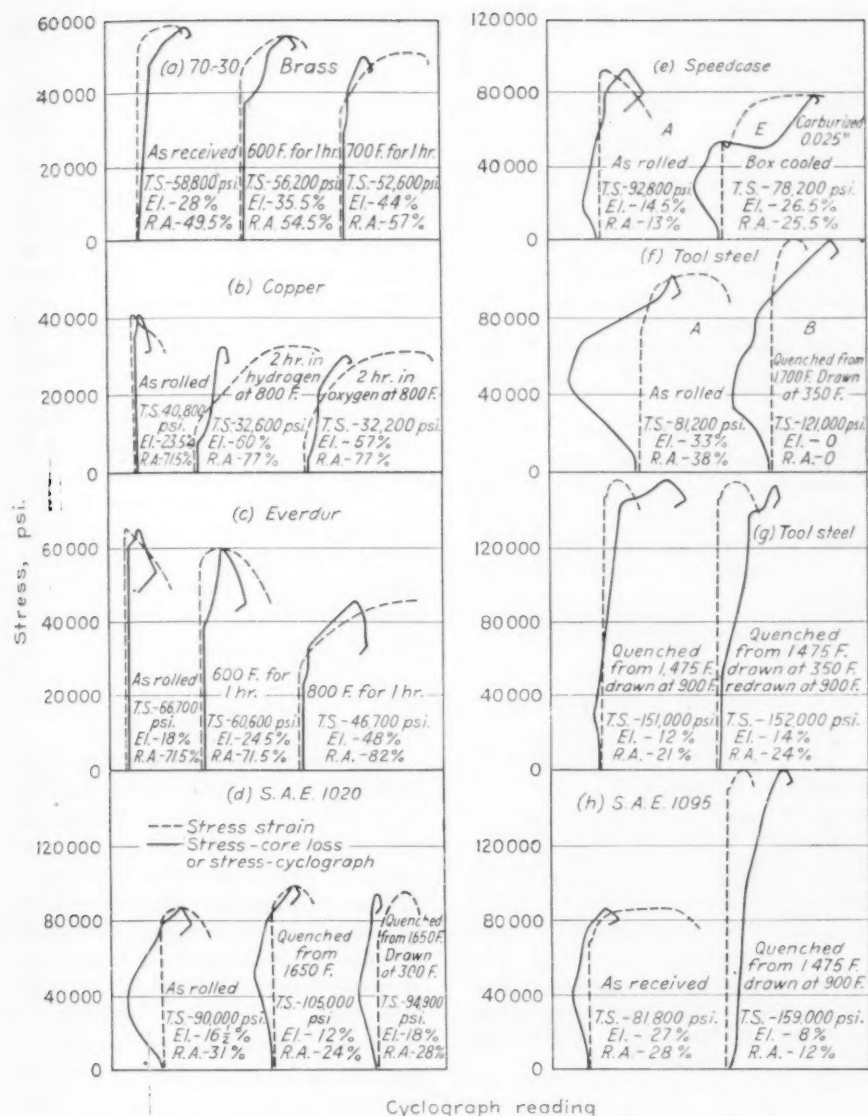 Stress, psi.
60000
40000
20000
0
(a) 70-30 Brass
As received
T.S.-58,800psi.
El.-28%
R.A-49.5%
600 F. for 1 hr.
T.S.-56,200psi.
El.-35.5%
R.A. 54.5%
700 F. for 1 hr.
T.S.-52,600psi.
El.-44%
R.A.-57%
(b) Copper
40000
20000
0
As rolled
T.S. 40,800
psi.
El.-23.5%
R.A-71.5%
2 hr. in
hydrogen
at 800 F.
T.S-32,600psi.
El.-60%
R.A-77%
2 hr. in
oxygen at 800F.
T.S.-32,200 psi.
El.-57%
R.A.-77%
(c) Everdur
60000
40000
20000
0
As rolled
T.S.-66,700
psi.
El.-18%
R.A-71.5%
600 F. for
1 hr.
T.S-60,600psi
El.-24.5%
R.A.-71.5%
800 F. for 1 hr.
T.S.-46,700
psi.
El.-48%
R.A.-82%
(d) S.A.E. 1020
Stress strain
Stress-core loss
or stress-cyclograph
120000
80000
40000
0
As rolled
T.S.-90,000psi.
El.-16 1/2 %
R.A-31%
Quenched
from
1650 F.
T.S.-105,000
psi
El.-12%
R.A.-24%
Quenched
from 1650F.
Drawn
at 300 F.
T.S-94,900
psi.
El.-18%
R.A-28%
120000
80000
40000
0
(e) Speedcase
A
As rolled
T.S.-92,800psi.
El.-14.5%
R.A-13%
E
Carburized
0.025"
Box cooled
T.S.-78,200 psi.
El.-26.5%
R.A.-25.5%
(f) Tool steel
80000
40000
0
A
As rolled
T.S.-81,200psi.
El.-33%
R.A.-38%
B
Quenched from
1,700F. Drawn
at 350 F.
T.S.-121,000psi
El.-0
R.A.-0
(g) Tool steel
120000
80000
40000
0
Quenched
from 1,475 F.
drawn at 900F.
T.S.-151,000psi
El.-12%
R.A.-21%
Quenched
from 1475 F.
drawn at 350 F.
redrawn at 900F.
T.S.-152,000psi
El.-14%
R.A.-24%
(h) S.A.E. 1095
120000
80000
40000
0
As received
T.S.-81,800 psi.
El.-27%
R.A.-28%
Quenched
from 1475 F.
drawn at 900F.
T.S.-159,000psi.
El.-8%
R.A.-12%
Cyclograph reading